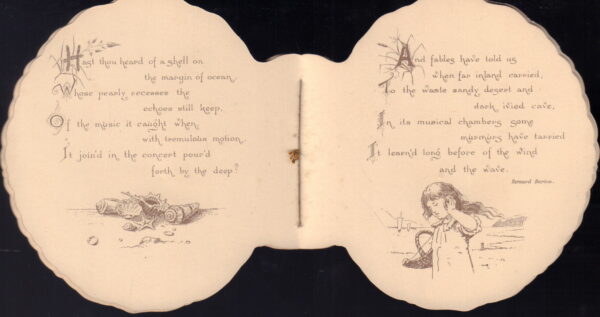 Hast thou heard of a shell on
the margin of ocean,
Whose pearly recesses the
echoes still keep,
Of the music it caught when,
with tremulous motion,
It join'd in the concert pour'd
forth by the deep?
And fables have told us
when far inland carried,
To the waste sandy desert and
dark ivied cave,
In its musical chambers some
murmurs have tarried
It learn'd long before of the wind
and the wave.
Bernard Barton.